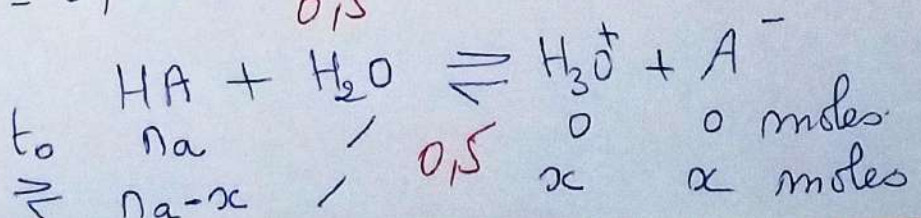 0,5
HA + H₂O ⇌ H₃O⁺ + A⁻
t₀ na / 0 0 moles
0,5
⇌ na-x / x x moles